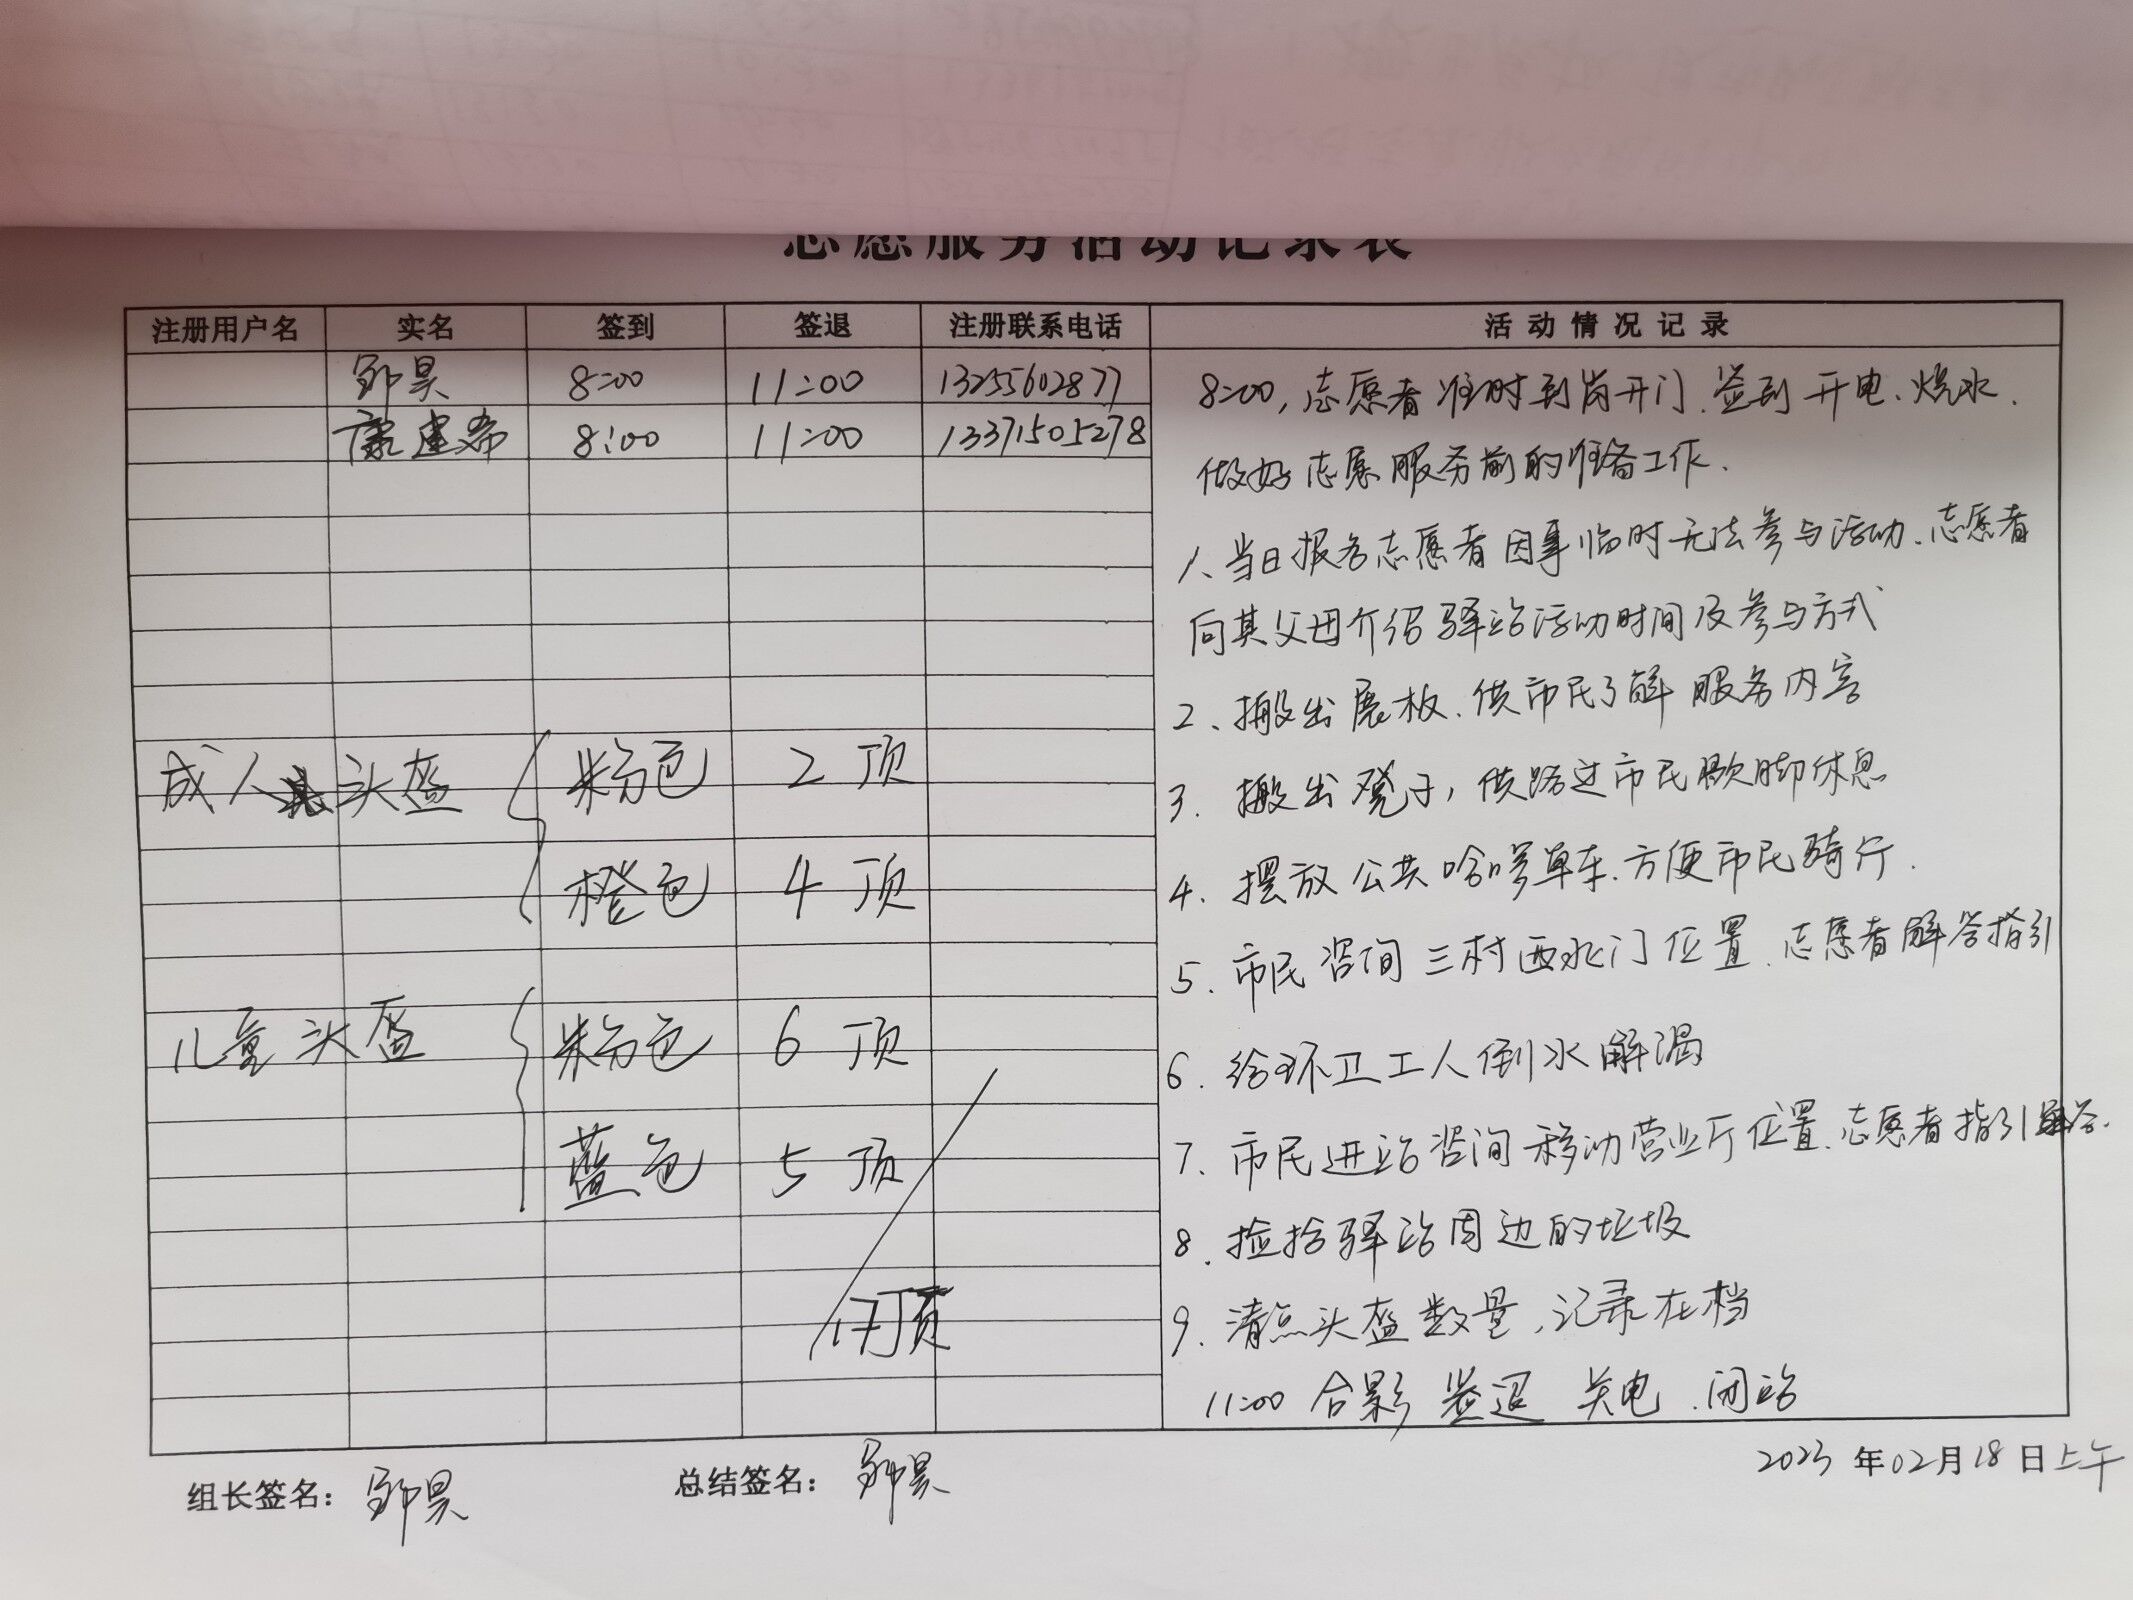 志愿服务活动记录表
注册用户名 实名 签到 签退 注册联系电话 活动情况记录
邹昊 8:00 11:00 13255602877
康建希 8:00 11:00 13371505278
成人头盔 粉色 2顶
橙色 4顶
儿童头盔 粉色 6顶
蓝色 5顶
17顶
8:00,志愿者准时到岗开门、签到 开电、烧水、
做好志愿服务前的准备工作.
1、当日报名志愿者因事临时无法参与活动、志愿者
向其父母介绍驿站活动时间及参与方式
2、搬出展板、供市民了解服务内容
3. 搬出凳子,供路过市民歇脚休息
4. 摆放公共哈啰单车、方便市民骑行.
5. 市民咨询三村西北门位置、志愿者解答指引
6. 给环卫工人倒水解渴
7. 市民进站咨询移动营业厅位置、志愿者指引解答.
8. 捡拾驿站周边的垃圾
9. 清点头盔数量、记录在档
11:00 合影 签退 关电、闭站
组长签名: 邹昊 总结签名: 邹昊
2023年02月18日上午